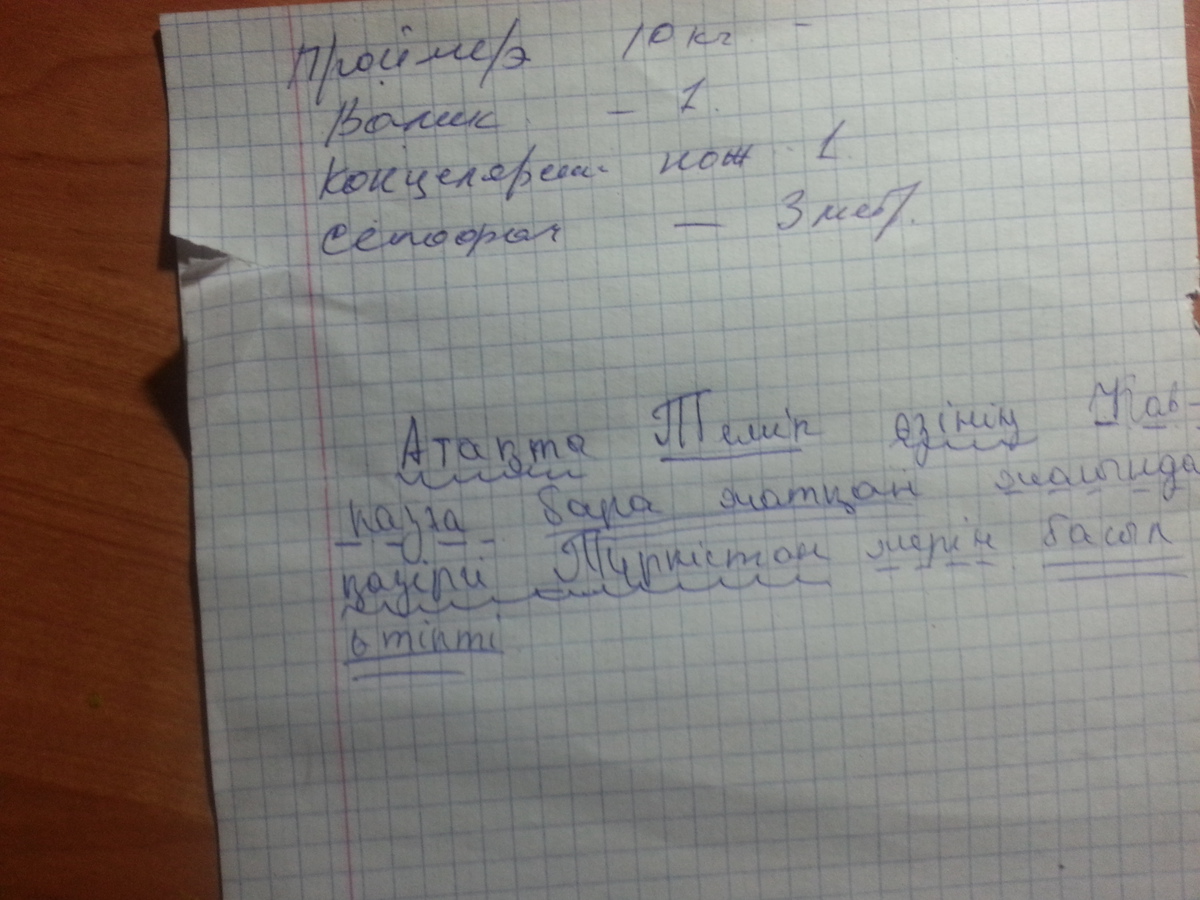 Проймерэ 10 кг -
Валик - 1.
Концеляреки- нож 1.
- 3 мет.
Атақты Темір өзінің Кав-
казға бара жатқан жолында
қазіргі Түркістан жерін басып
өтіпті